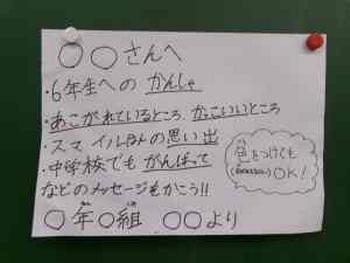 ○○さんへ
・6年生への かんしゃ
・あこがれているところ、かっこいいところ
・スマイル班の思い出
・中学校でも がんばって
などのメッセージをかこう!!
色をつけても
OK!
○年○組 ○○より